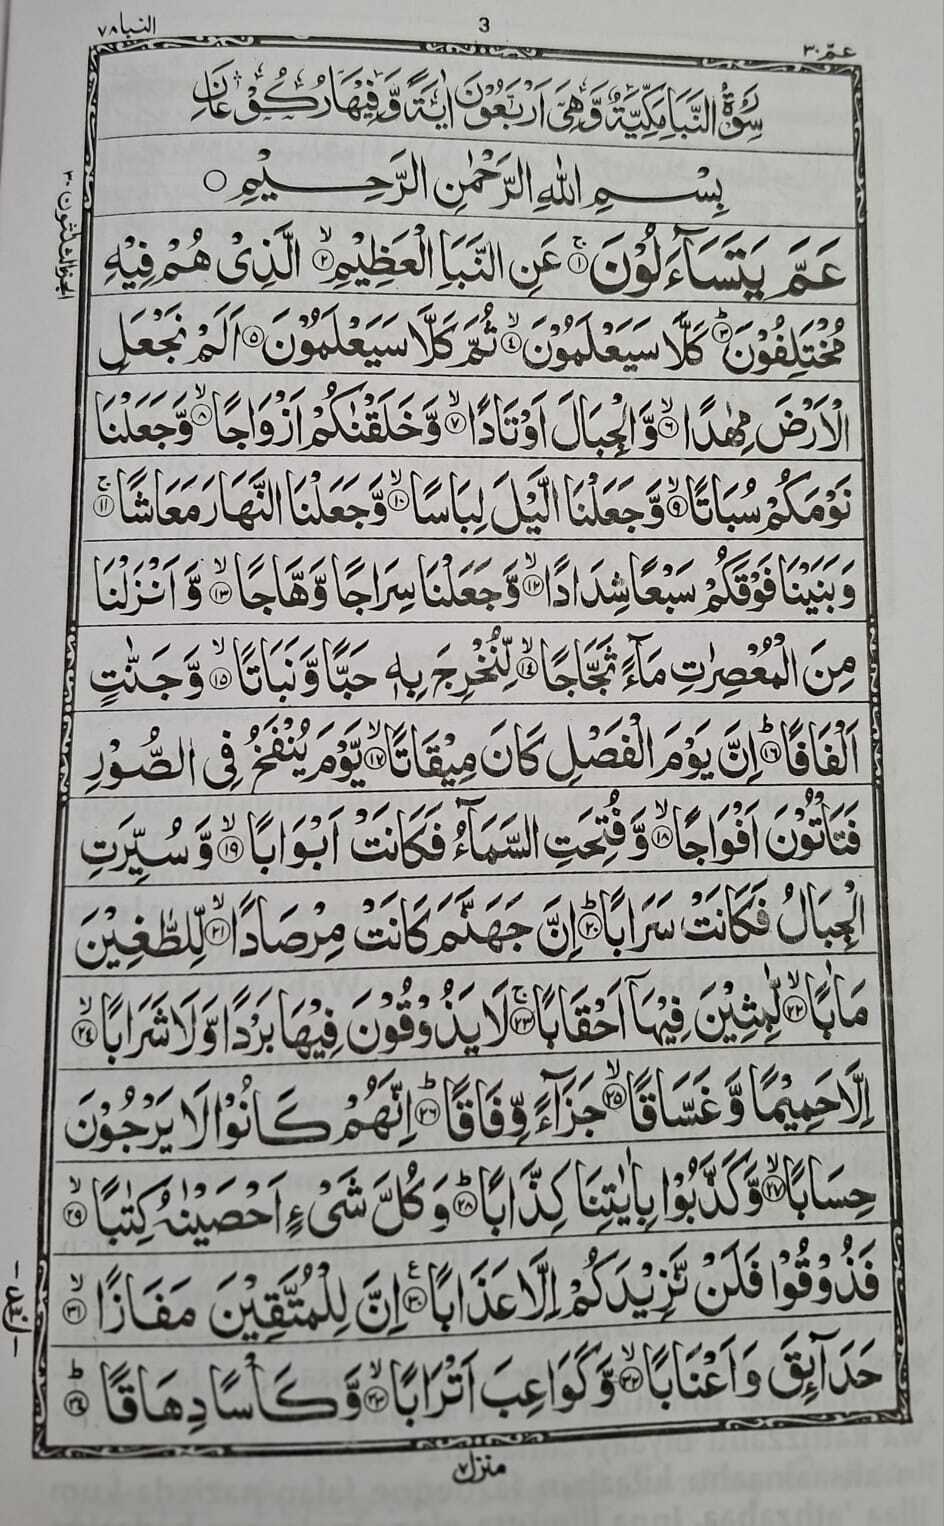 النبا ٧٨
3
عمّ ٣٠
سُوْرَةُ النَّبَاِ مَكِّيَّةٌ وَّهِيَ اَرْبَعُوْنَ اٰيَةً وَّفِيْهَا رُكُوْعَانِ
بِسْمِ اللّٰهِ الرَّحْمٰنِ الرَّحِيْمِ ○
عَمَّ يَتَسَآءَلُوْنَ ۚ﴿۱﴾ عَنِ النَّبَاِ الْعَظِيْمِ ۙ﴿۲﴾ الَّذِيْ هُمْ فِيْهِ
مُخْتَلِفُوْنَ ؕ﴿۳﴾ كَلَّا سَيَعْلَمُوْنَ ۙ﴿۴﴾ ثُمَّ كَلَّا سَيَعْلَمُوْنَ ﴿۵﴾ اَلَمْ نَجْعَلِ
الْاَرْضَ مِهٰدًا ۙ﴿۶﴾ وَّالْجِبَالَ اَوْتَادًا ۙ﴿۷﴾ وَّخَلَقْنٰكُمْ اَزْوَاجًا ۙ﴿۸﴾ وَّجَعَلْنَا
نَوْمَكُمْ سُبَاتًا ۙ﴿۹﴾ وَّجَعَلْنَا الَّيْلَ لِبَاسًا ۙ﴿۱۰﴾ وَّجَعَلْنَا النَّهَارَ مَعَاشًا ۚ﴿۱۱﴾
وَبَنَيْنَا فَوْقَكُمْ سَبْعًا شِدَادًا ۙ﴿۱۲﴾ وَّجَعَلْنَا سِرَاجًا وَّهَّاجًا ۙ﴿۱۳﴾ وَّاَنْزَلْنَا
مِنَ الْمُعْصِرٰتِ مَآءً ثَجَّاجًا ۙ﴿۱۴﴾ لِّنُخْرِجَ بِهٖ حَبًّا وَّنَبَاتًا ۙ﴿۱۵﴾ وَّجَنّٰتٍ
اَلْفَافًا ؕ﴿۱۶﴾ اِنَّ يَوْمَ الْفَصْلِ كَانَ مِيْقَاتًا ۙ﴿۱۷﴾ يَّوْمَ يُنْفَخُ فِي الصُّوْرِ
فَتَاْتُوْنَ اَفْوَاجًا ۙ﴿۱۸﴾ وَّفُتِحَتِ السَّمَآءُ فَكَانَتْ اَبْوَابًا ۙ﴿۱۹﴾ وَّسُيِّرَتِ
الْجِبَالُ فَكَانَتْ سَرَابًا ؕ﴿۲۰﴾ اِنَّ جَهَنَّمَ كَانَتْ مِرْصَادًا ۙ﴿۲۱﴾ لِّلطّٰغِيْنَ
مَاٰبًا ۙ﴿۲۲﴾ لّٰبِثِيْنَ فِيْهَآ اَحْقَابًا ۚ﴿۲۳﴾ لَا يَذُوْقُوْنَ فِيْهَا بَرْدًا وَّلَا شَرَابًا ۙ﴿۲۴﴾
اِلَّا حَمِيْمًا وَّغَسَّاقًا ۙ﴿۲۵﴾ جَزَآءً وِّفَاقًا ؕ﴿۲۶﴾ اِنَّهُمْ كَانُوْا لَا يَرْجُوْنَ
حِسَابًا ۙ﴿۲۷﴾ وَّكَذَّبُوْا بِاٰيٰتِنَا كِذَّابًا ؕ﴿۲۸﴾ وَكُلَّ شَيْءٍ اَحْصَيْنٰهُ كِتٰبًا ۙ﴿۲۹﴾
فَذُوْقُوْا فَلَنْ نَّزِيْدَكُمْ اِلَّا عَذَابًا ﴿۳۰﴾ اِنَّ لِلْمُتَّقِيْنَ مَفَازًا ۙ﴿۳۱﴾
حَدَآئِقَ وَاَعْنَابًا ۙ﴿۳۲﴾ وَّكَوَاعِبَ اَتْرَابًا ۙ﴿۳۳﴾ وَّكَاْسًا دِهَاقًا ؕ﴿۳۴﴾
منزل ٧
الجزء الثلثون ٣٠